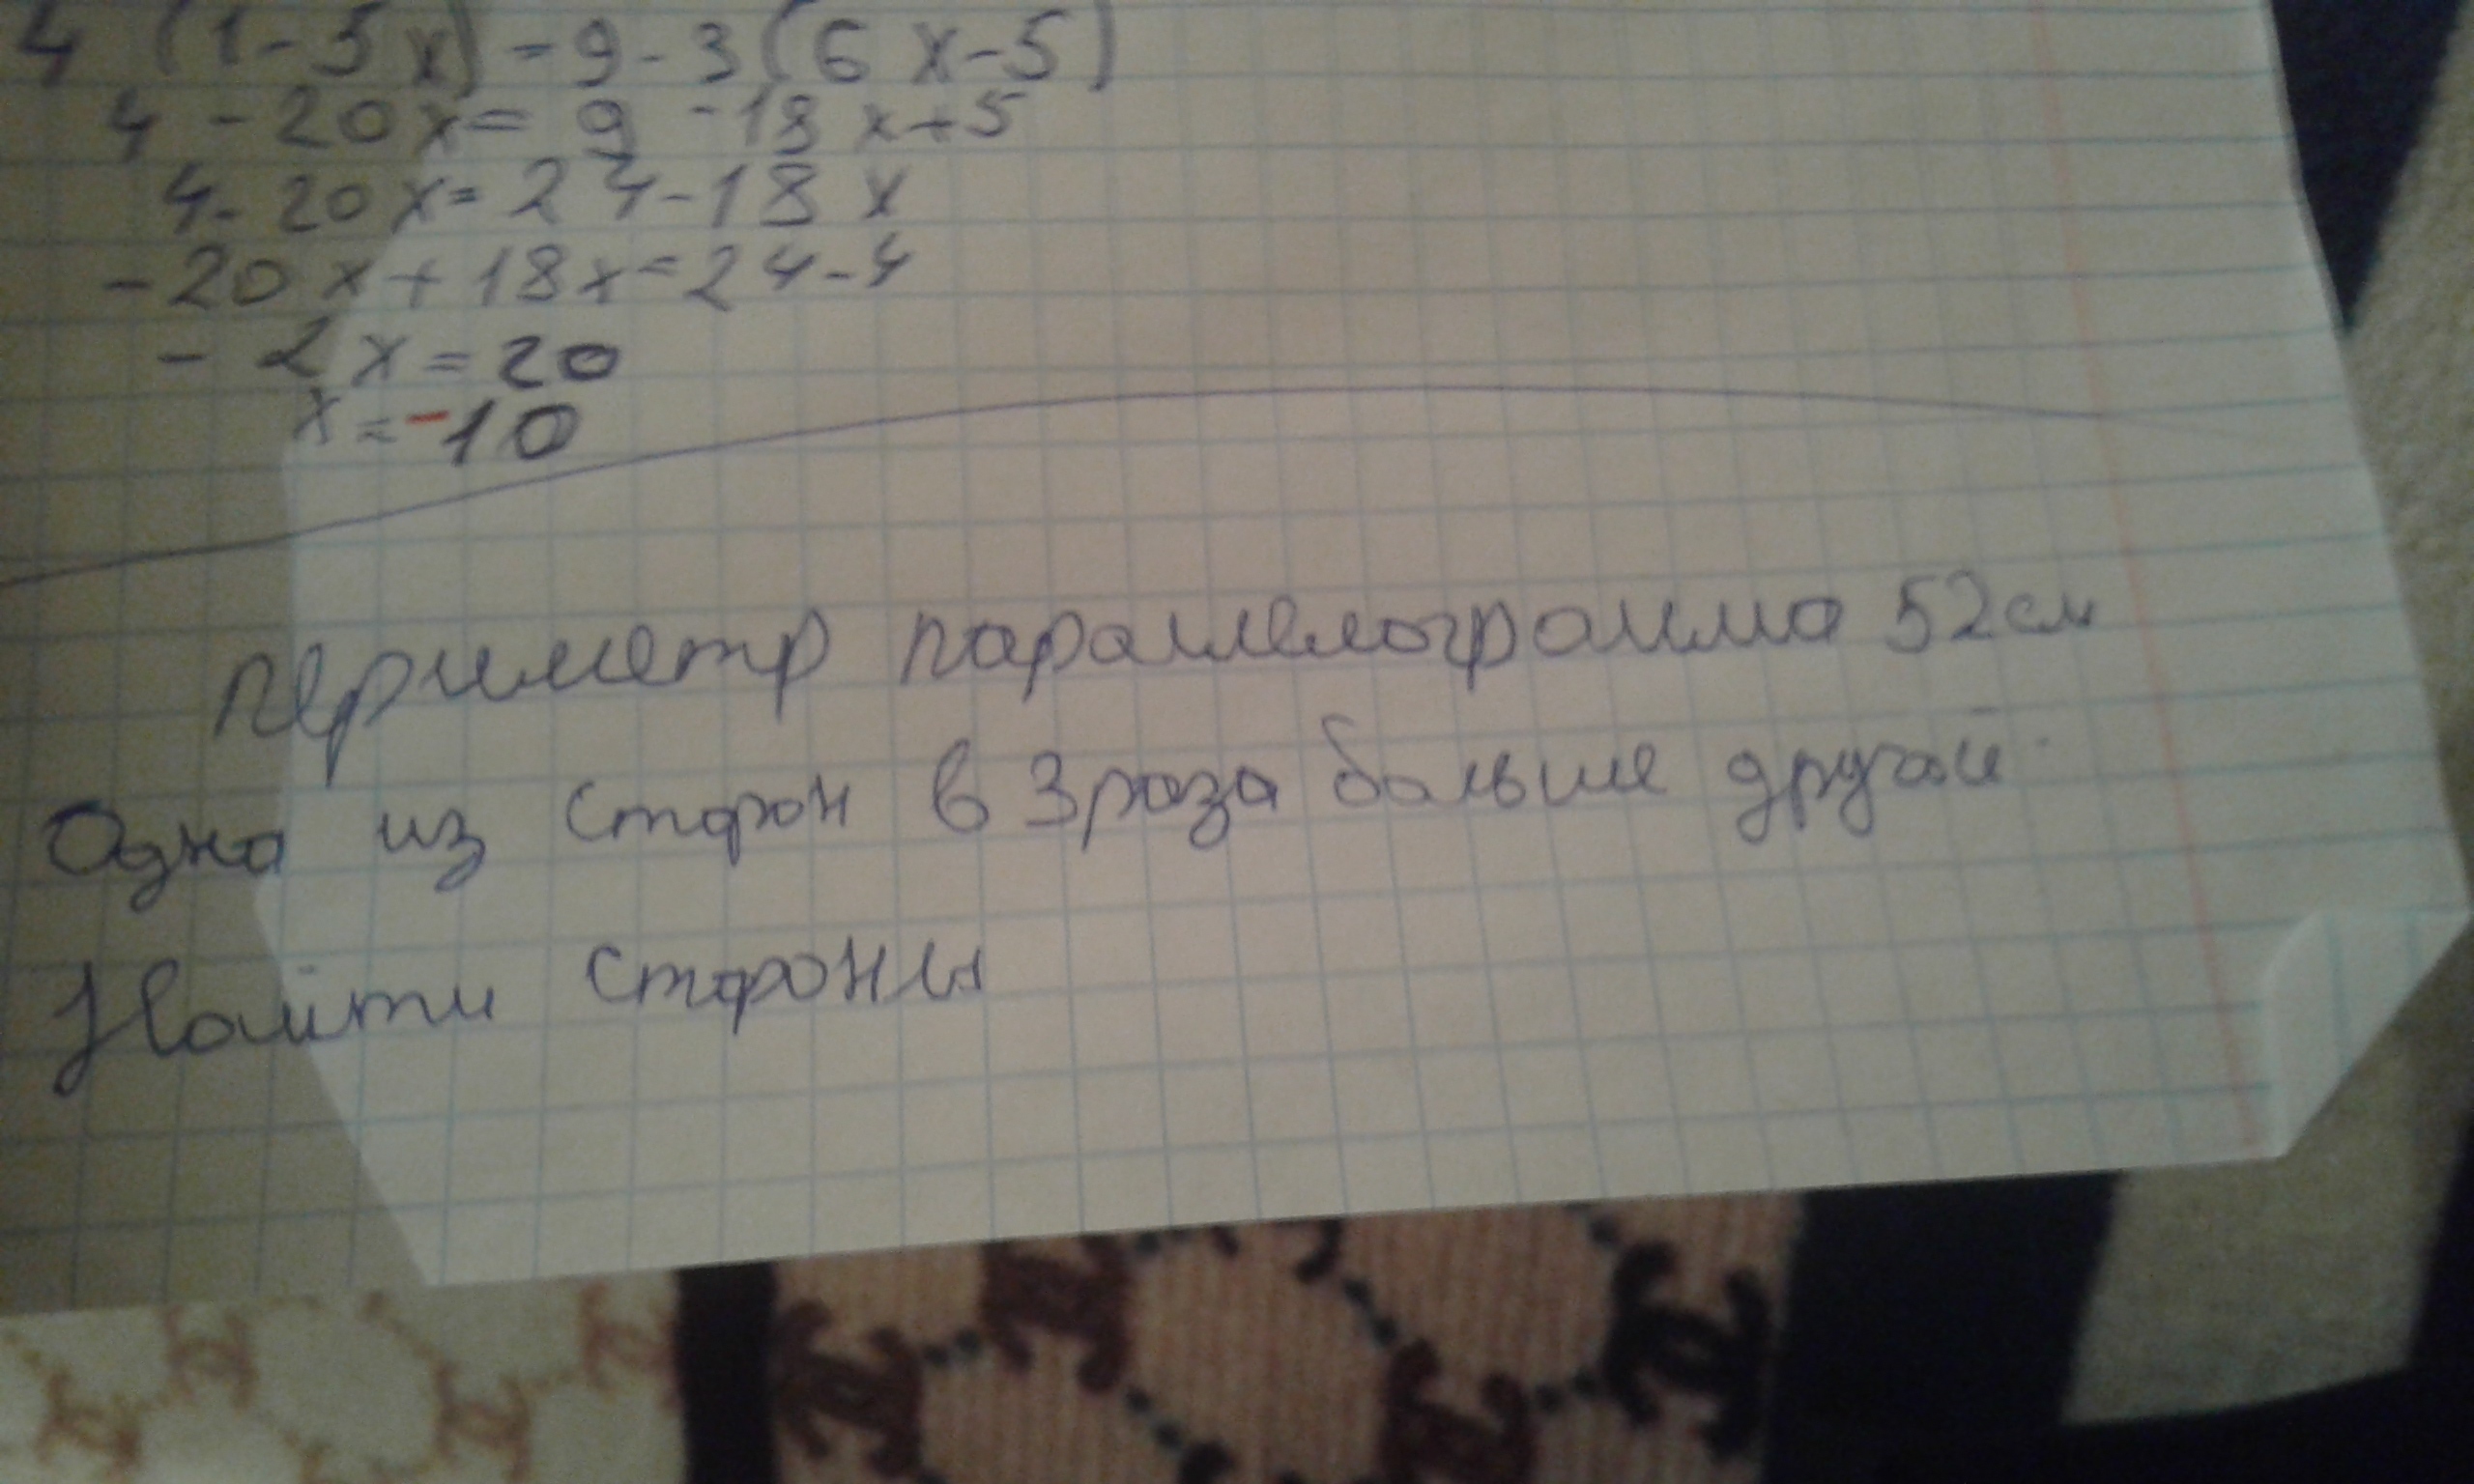 4 (1-5x) = 9-3(6x-5)
4-20x= 9-18x+5
4-20x= 24-18x
-20x+18x=24-4
-2x=20
x=-10
Периметр параллелограмма 52см
Одна из сторон в 3 раза больше другой.
Найти стороны